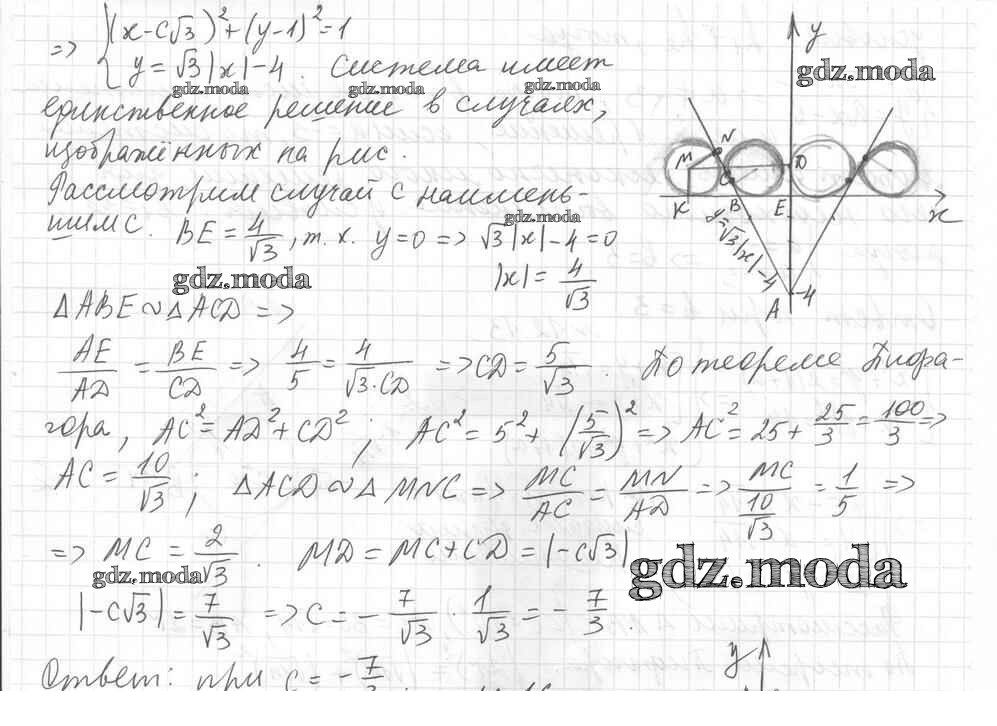 => { (x-c√3)²+(y-1)²=1
y=√3|x|-4. Система имеет
единственное решение в случаях,
изображённых на рис.
Рассмотрим случай с наимень-
шим с. BE=4/√3, т.к. y=0 => √3|x|-4=0
|x|=4/√3
ΔABE∾ΔACD =>
AE/AD=BE/CD => 4/5=4/(√3·CD) => CD=5/√3. По теореме Пифа-
гора, AC²=AD²+CD²; AC²=5²+(5/√3)² => AC²=25+25/3=100/3 =>
AC=10/√3; ΔACD∾ΔMNC => MC/AC=MN/AD => MC/(10/√3)=1/5 =>
=> MC=2/√3. MD=MC+CD=|-c√3|
|-c√3|=7/√3 => c=-7/√3·1/√3=-7/3
Ответ: при c=-7/3
y
M
N
C
D
K
B
E
x
y=√3|x|-4
A
-4
y
gdz.moda
gdz.moda
gdz.moda
gdz.moda
gdz.moda
gdz.moda
gdz.moda
gdz.moda